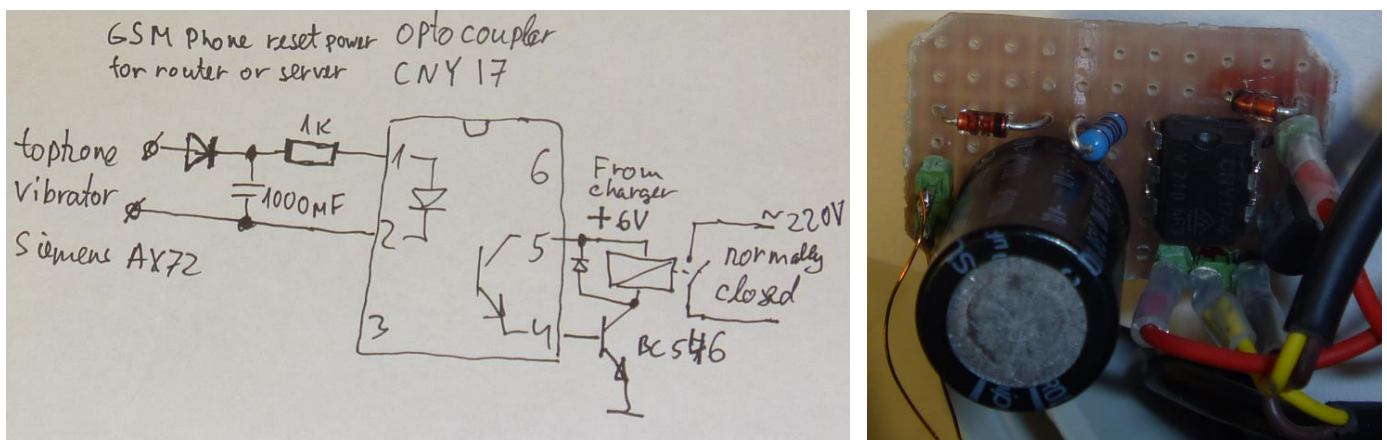 GSM Phone reset power
for router or server
optocoupler
CNY 17
to phone
vibrator
Siemens AX72
1K
1000MF
1
2
3
6
5
4
From
charger
+6V
~220V
normally
closed
BC546
CNY74